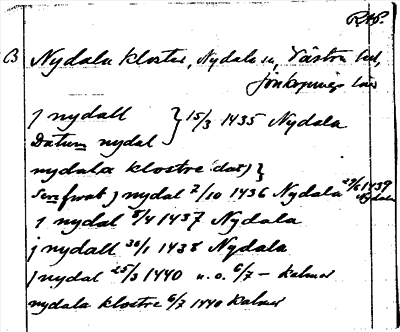 RAP.
B Nydala kloster, Nydala sn, Västra hd,
Jönköpings län
j nydall } 15/3 1435 Nydala
Datum nydal
nydala klostre (dat) }
Scrifwat j nydal 2/10 1436 Nydala 29/6 1439 Nydala
j nydal 8/4 1437 Nydala
j nydall 30/1 1438 Nydala
j nydal 25/3 1440 u.o. 6/7 - Kalmar
nydala klostre 6/7 1440 Kalmar